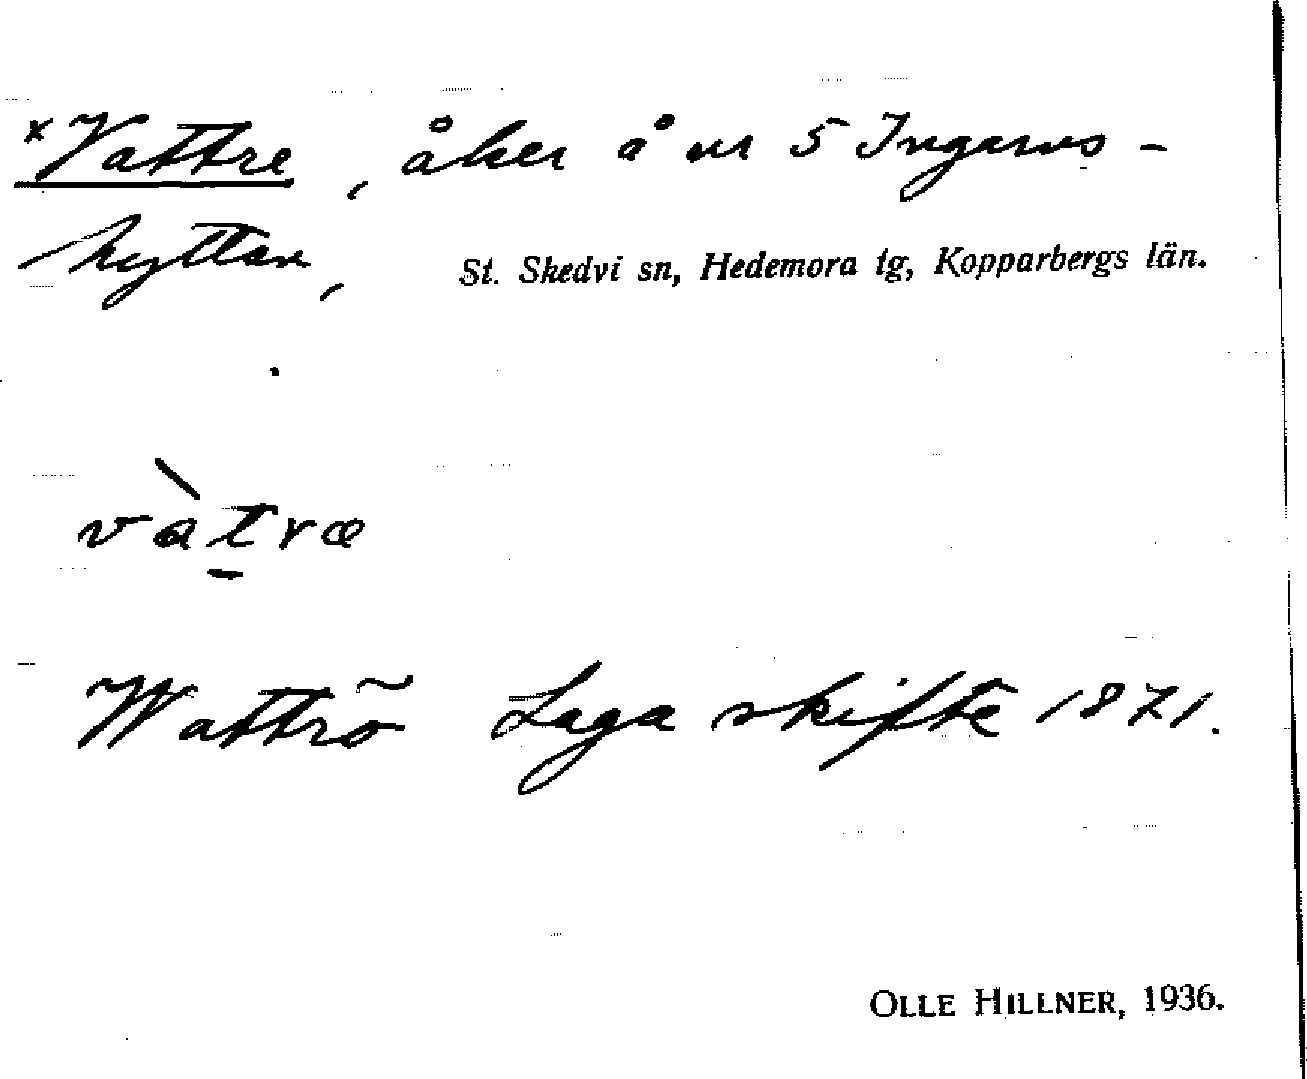 *Vattre, åker å nr 5 Ingarvs-
hyttan, St. Skedvi sn, Hedemora tg, Kopparbergs län.
vàtræ
Wattrö Laga skifte 1871.
OLLE HILLNER, 1936.